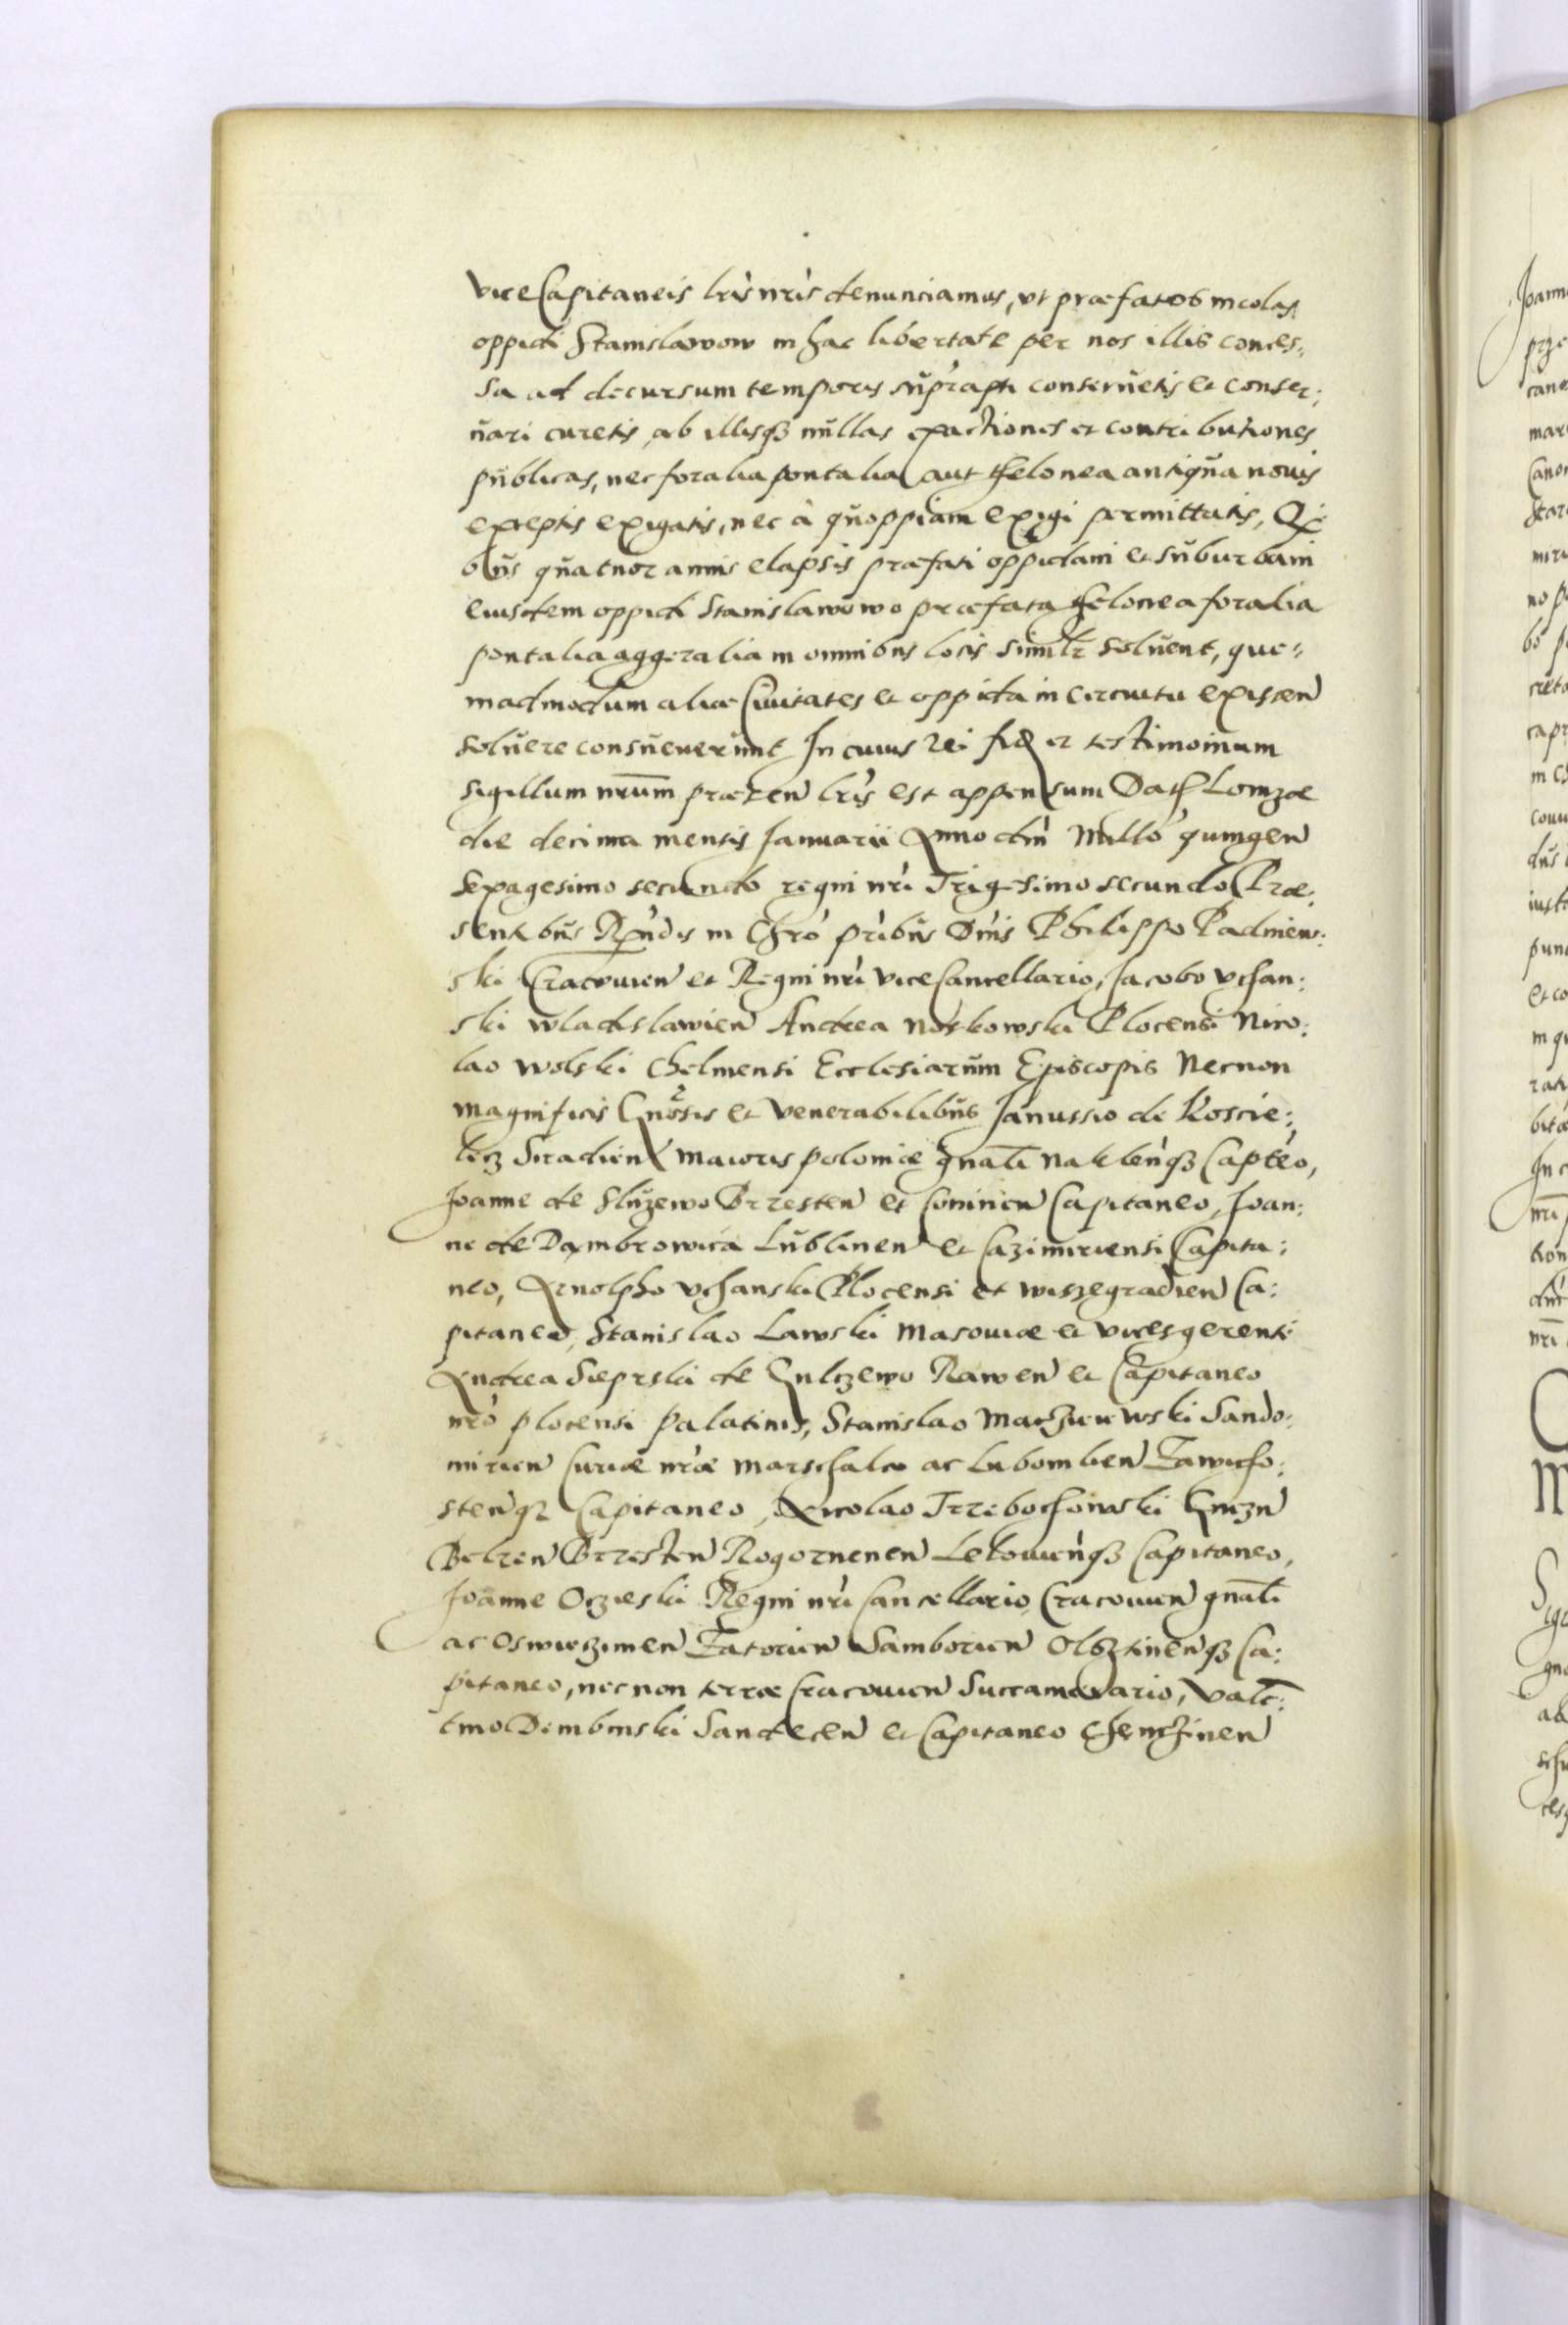 viceCapitaneis lr̃is nr̃is denunciamus, vt præfatos incolas
oppidi Stanislawow in hac libertate per nos illis conces-
sa ad decursum temporis suprapti conseruetis et conser-
uari curetis, ab illisqz nullas exactiones et contributiones
publicas, nec foralia pontalia aut thelonea antiqua nouis
exceptis exigatis, nec à quoppiam exigi permittatis, Qi-
bus quatuor annis elapsis præfati oppidani et suburbani
eiusdem oppidi Stanislawowo præfata thelonea foralia
pontalia aggeralia in omnibus locis simlr soluent, que-
madmodum aliæ Ciuitates et oppida in circuitu existen
soluere consueuerunt In cuius rei fid et testimonium
sigillum nrum præsen lris est appensum Dat Lomzæ
die decima mensis Januarii Anno dni Millo quingen
sexagesimo secundo regni nri Trigesimo secundo Præ-
sentibus Rndis in Chro pribus Dnis Philippo Padniew-
ski Cracouien et Regni nri viceCancellario, Jacobo vchan-
ski wladislawien Andrea Noskowski Plocensi Nico-
lao wolski Chelmensi Ecclesiarum Episcopis Necnon
magnificis Gnosis et venerabilibus Janussio de Koscie-
lecz Siradien maioris poloniæ gnali naklenqz Capteo,
Joanne de Sluzewo Brzesten et Coninen Capitaneo, Joan-
ne de Dambrowica Lublinen et Cazimiriensi Capita-
neo, Arnolpho vchanski Plocensi et wiszegradien Ca-
pitaneo, Stanislao Lawski Masouiæ et vicesgerenti
Andrea Sieprski de Gulczewo Rawen et Capitaneo
nro plocensi palatinis, Stanislao Maczieiewski Sando-
mirien Curiæ nræ marschalco ac Lubomlien Zawicho-
stenqz Capitaneo, Nicolao Trzebochowski Gnezn
Belzen Brzesten Rogoznenen Lelouienqz Capitaneo,
Joanne Oczieski Regni nri Cancellario Cracouien gnali
ac Oswieczimen Zatorien Samborien Olsztinenqz Ca-
pitaneo, nec non terræ Cracouien Succamerario, Valē-
tino Dembinski Sandecen et Capitaneo Chenczinen